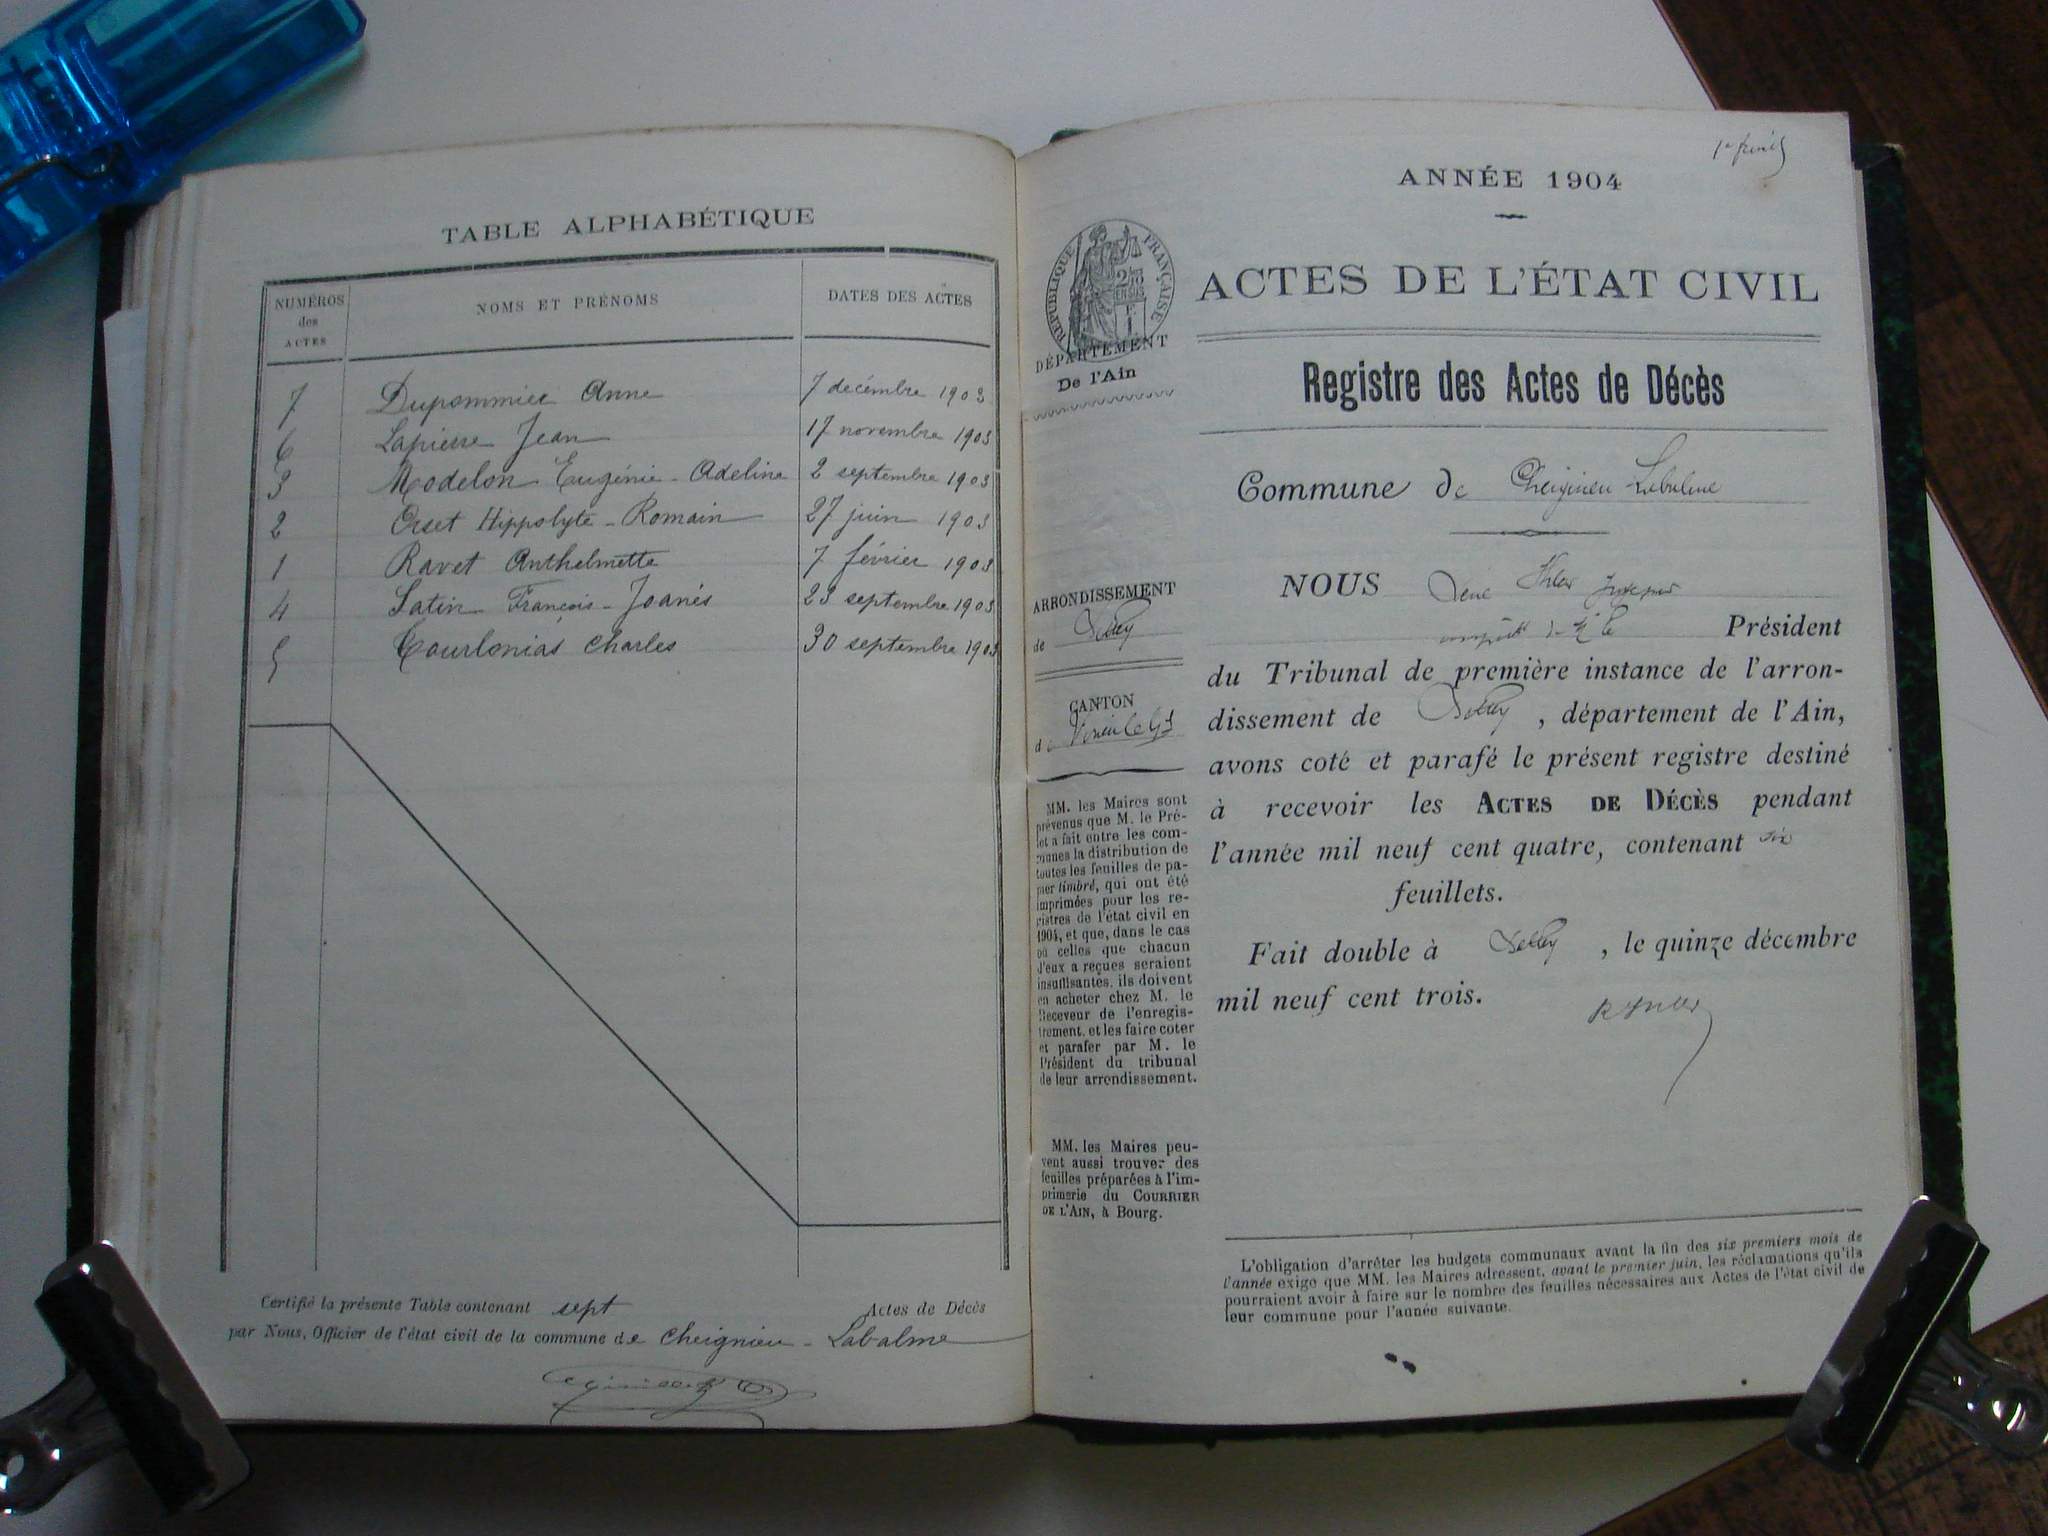 TABLE ALPHABÉTIQUE
NUMÉROS des ACTES
NOMS ET PRÉNOMS
DATES DES ACTES
7 Dupommier Anne 7 décembre 1903
6 Lapierre Jean 17 novembre 1903
3 Modelon Eugénie-Adeline 2 septembre 1903
2 Orset Hippolyte-Romain 27 juin 1903
1 Ravet Anthelmette 7 février 1903
4 Satin François-Joanès 23 septembre 1903
5 Tourlonias Charles 30 septembre 1903
Certifié la présente Table contenant sept Actes de Décès
par Nous, Officier de l'état civil de la commune de Cheignieu-Labalme
ANNÉE 1904
RÉPUBLIQUE FRANÇAISE
DÉPARTEMENT
De l'Ain
ARRONDISSEMENT
de Belley
CANTON
de Virieu le Gd
MM. les Maires sont
prévenus que M. le Pré-
fet a fait entre les com-
munes la distribution de
toutes les feuilles de pa-
pier timbré, qui ont été
imprimées pour les re-
gistres de l'état civil en
1904, et que, dans le cas
où celles que chacun
d'eux a reçues seraient
insuffisantes, ils doivent
en acheter chez M. le
Receveur de l'enregis-
trement, et les faire coter
et parafer par M. le
Président du tribunal
de leur arrondissement.
MM. les Maires peu-
vent aussi trouver des
feuilles préparées à l'im-
primerie du COURRIER
DE L'AIN, à Bourg.
ACTES DE L'ÉTAT CIVIL
Registre des Actes de Décès
Commune de Cheignieu-Labalme
NOUS
Président
du Tribunal de première instance de l'arron-
dissement de Belley, département de l'Ain,
avons coté et parafé le présent registre destiné
à recevoir les ACTES DE DÉCÈS pendant
l'année mil neuf cent quatre, contenant six
feuillets.
Fait double à Belley, le quinze décembre
mil neuf cent trois.
L'obligation d'arrêter les budgets communaux avant la fin des six premiers mois de
l'année exige que MM. les Maires adressent, avant le premier juin, les réclamations qu'ils
pourraient avoir à faire sur le nombre des feuilles nécessaires aux Actes de l'état civil de
leur commune pour l'année suivante.